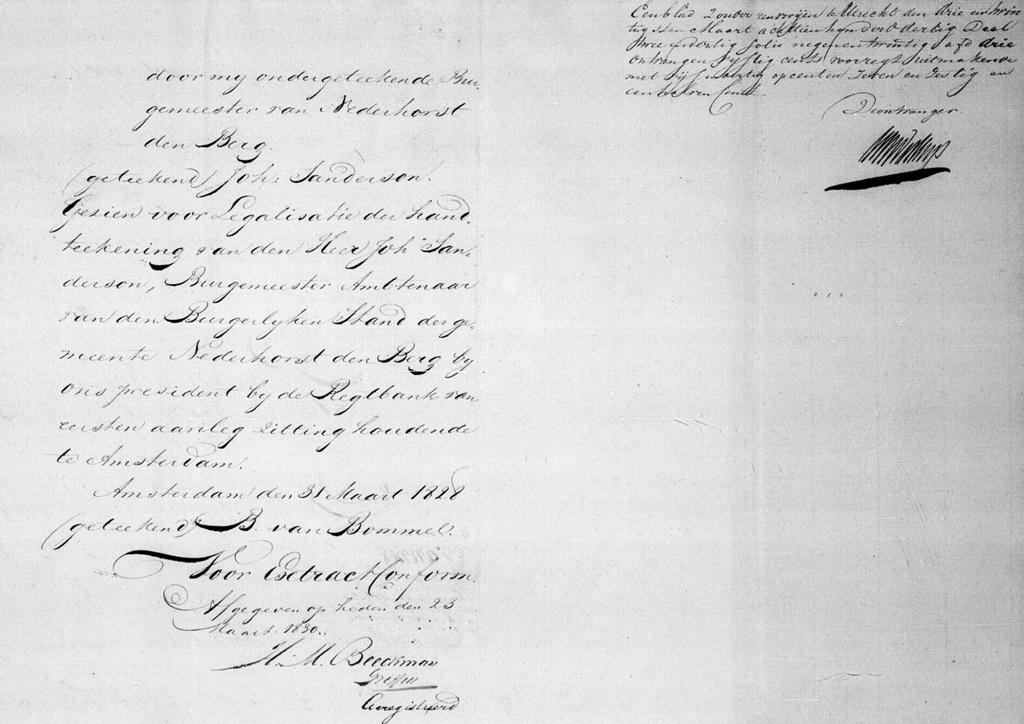 door my ondergeteekende Bur-
gemeester van Nederhorst
den Berg.
(geteekend) Joh: Sanderson.
Gezien voor Legalisatie der hand-
teekening van den Heer Joh: San-
derson, Burgemeester Ambtenaar
van den Burgerlyken Stand der ge-
meente Nederhorst den Berg by
ons president by de Regtbank van
eersten aanleg zitting houdende
te Amsterdam.
Amsterdam den 31 Maart 1828
(geteekend) B. van Bommel.
Voor Extract Conform.
Afgegeven op heden den 23
Maart 1830.
H. M. Beeckman
Greffier
Geregistreerd
Een blad zonder renvooijen te Utrecht den drie en twin
tigsten Maart achttienhonderd dertig Deel
twee folio negenentwintig vak drie
ontvangen vijftig cents voor regt uitmakende
met opcenten zeven en zestig
een cent
De ontvanger